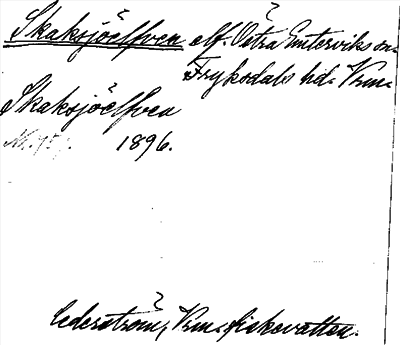 Skaksjöelfven elf. Östra Emterviks sn.
Fryksdals hd. Vrm.
Skaksjöelfven
1896.
Cederström, Vrm. fiskevatten.